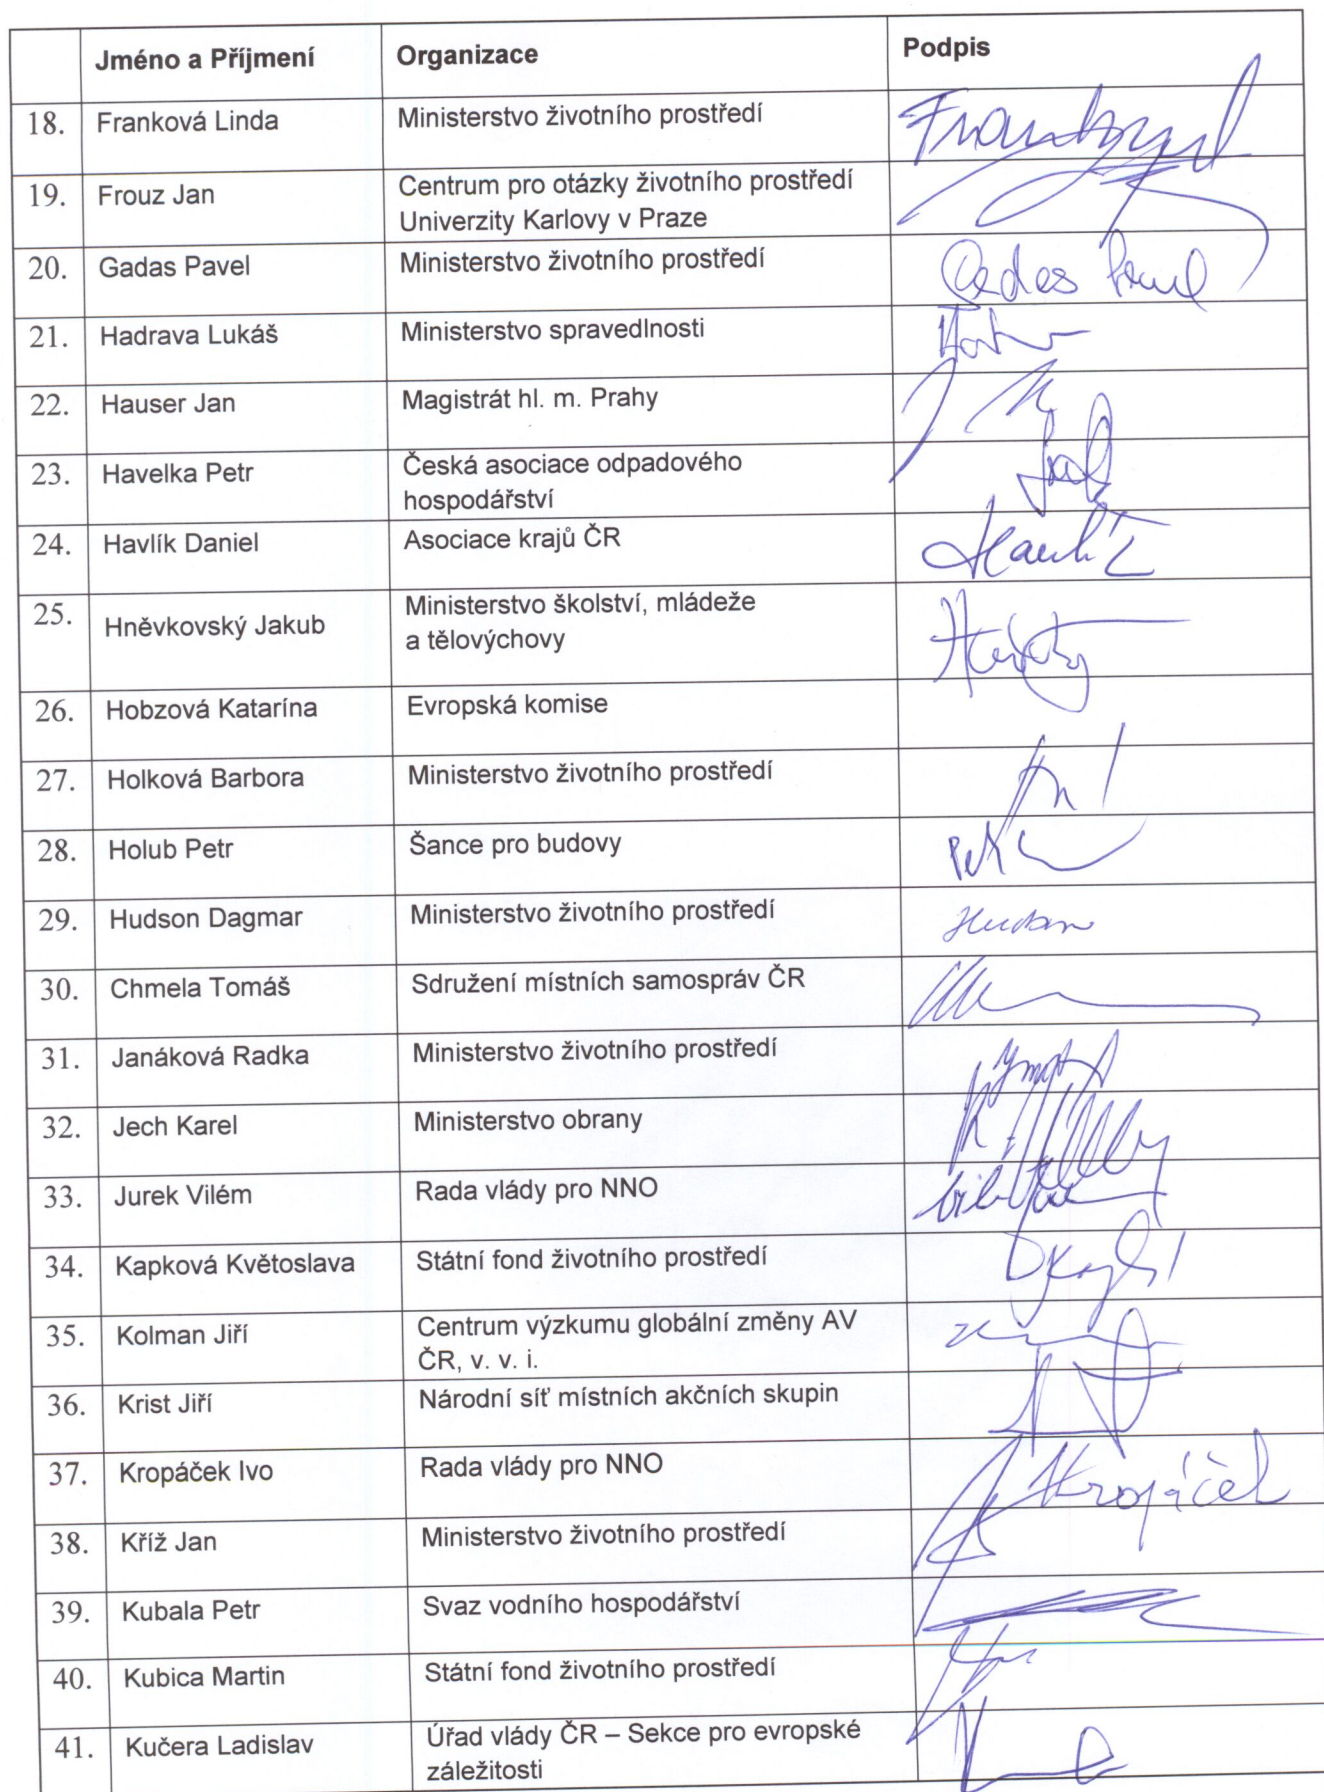 Jméno a Příjmení Organizace Podpis
18. Franková Linda Ministerstvo životního prostředí
19. Frouz Jan Centrum pro otázky životního prostředí
Univerzity Karlovy v Praze
20. Gadas Pavel Ministerstvo životního prostředí Gadas Pavel
21. Hadrava Lukáš Ministerstvo spravedlnosti
22. Hauser Jan Magistrát hl. m. Prahy
23. Havelka Petr Česká asociace odpadového
hospodářství
24. Havlík Daniel Asociace krajů ČR Havlík
25. Hněvkovský Jakub Ministerstvo školství, mládeže
a tělovýchovy
26. Hobzová Katarína Evropská komise
27. Holková Barbora Ministerstvo životního prostředí
28. Holub Petr Šance pro budovy
29. Hudson Dagmar Ministerstvo životního prostředí Hudson
30. Chmela Tomáš Sdružení místních samospráv ČR
31. Janáková Radka Ministerstvo životního prostředí
32. Jech Karel Ministerstvo obrany
33. Jurek Vilém Rada vlády pro NNO
34. Kapková Květoslava Státní fond životního prostředí
35. Kolman Jiří Centrum výzkumu globální změny AV
ČR, v. v. i.
36. Krist Jiří Národní síť místních akčních skupin
37. Kropáček Ivo Rada vlády pro NNO Kropáček
38. Kříž Jan Ministerstvo životního prostředí
39. Kubala Petr Svaz vodního hospodářství
40. Kubica Martin Státní fond životního prostředí
41. Kučera Ladislav Úřad vlády ČR – Sekce pro evropské
záležitosti